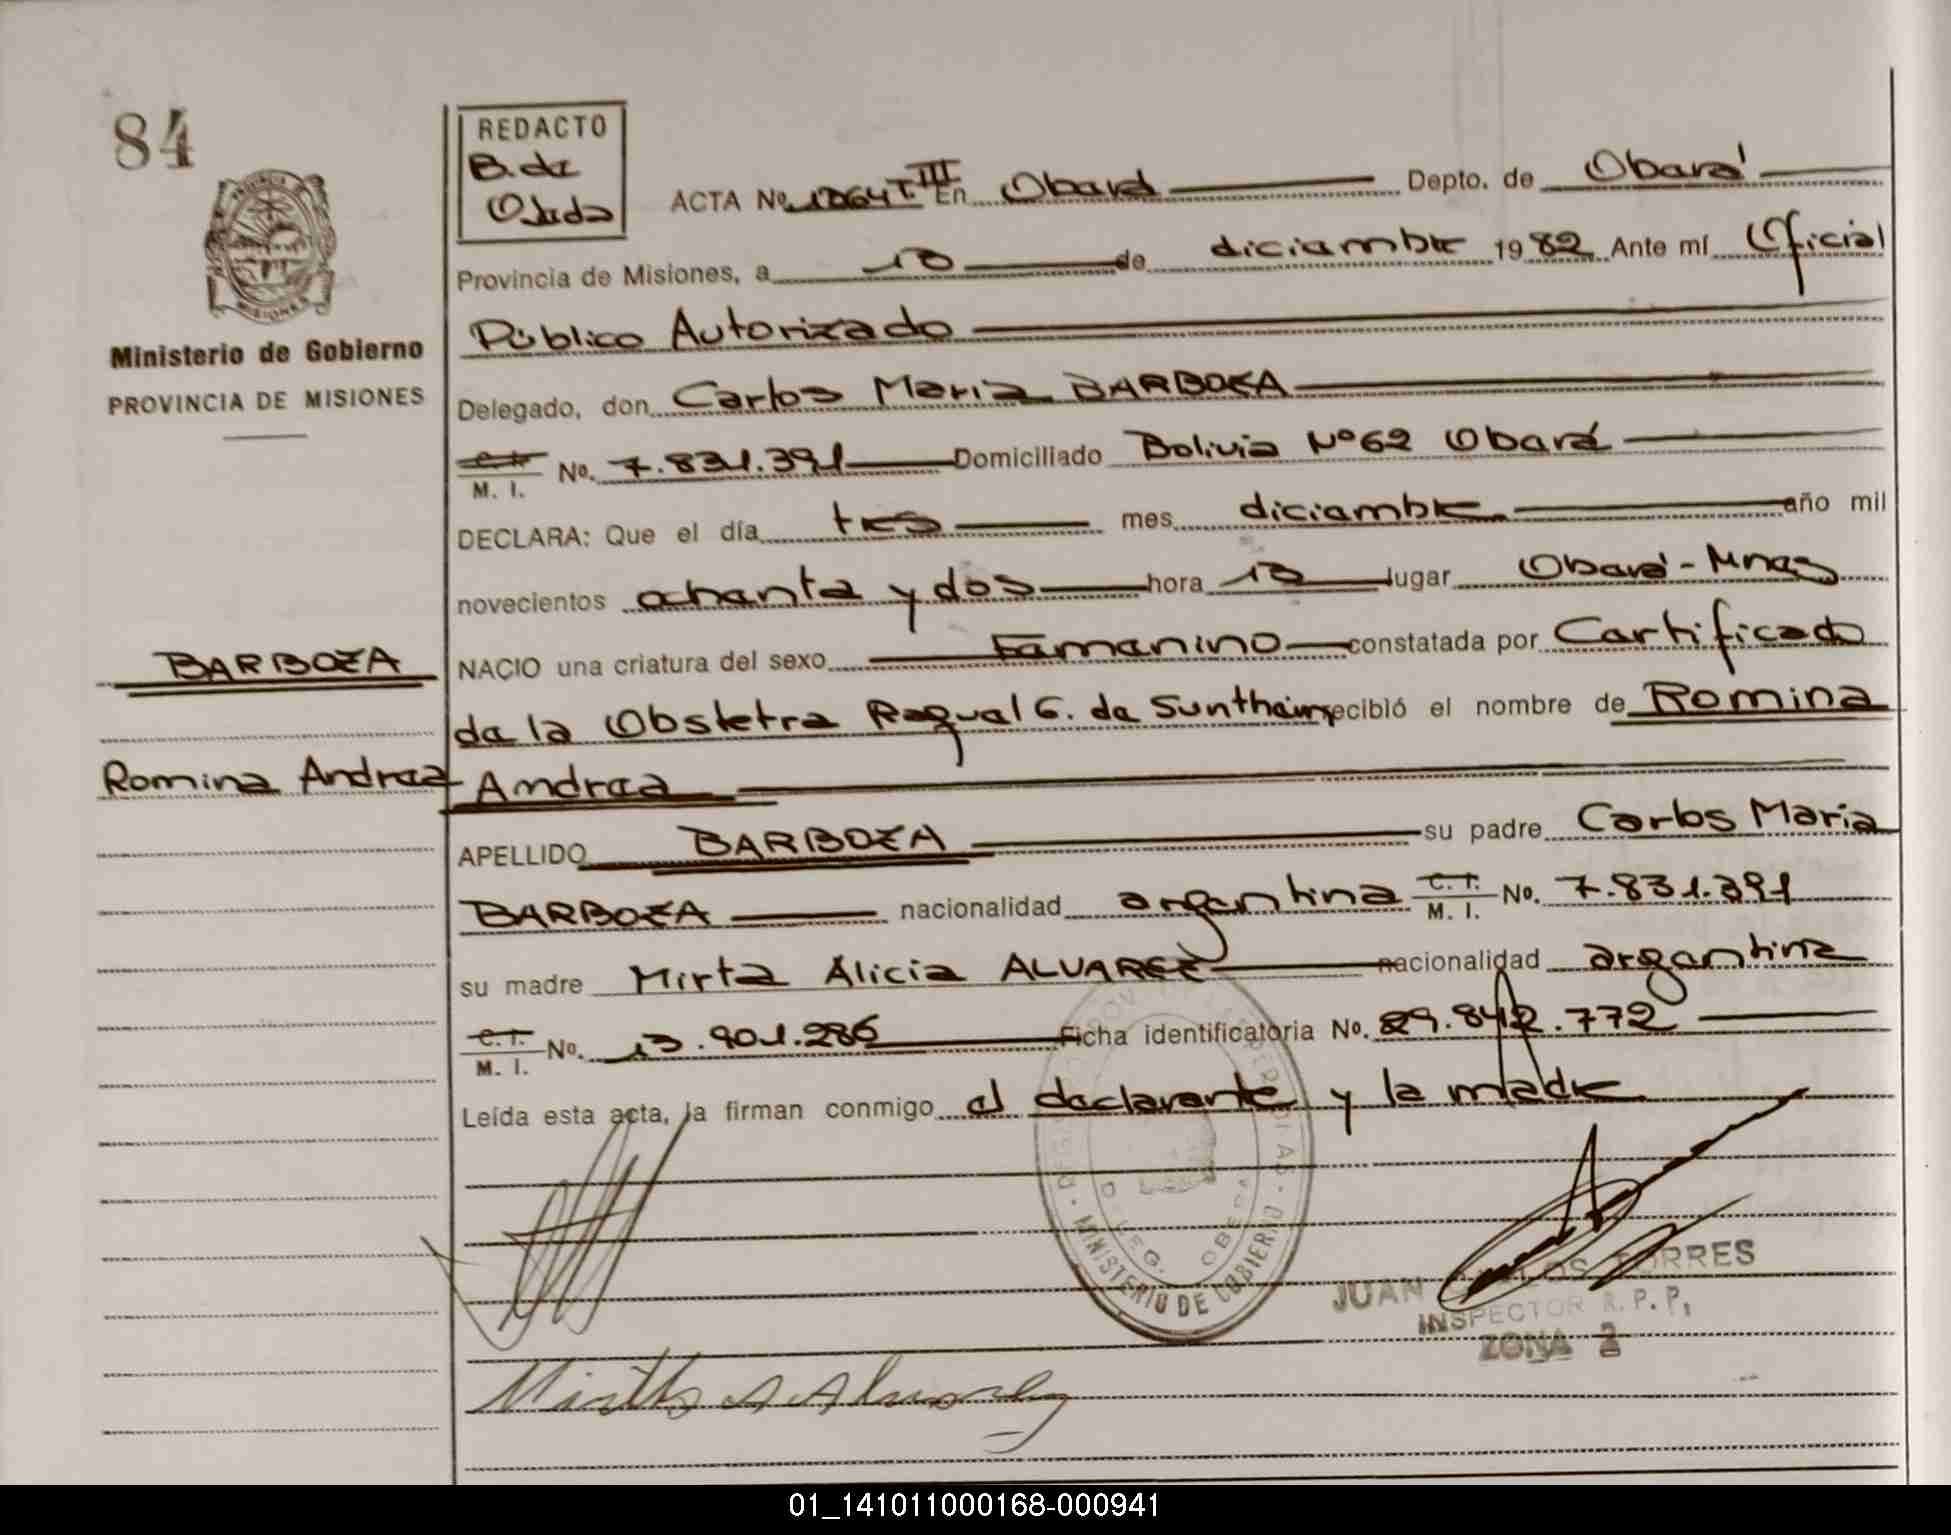 84
REDACTO
B. de
Ojeda
ACTA No. 1064 T. III En Oberá Depto. de Oberá
Provincia de Misiones, a 10 de diciembre 1982 Ante mí Oficial
Público Autorizado
Ministerio de Gobierno
PROVINCIA DE MISIONES
MISIONES
Delegado, don Carlos Maria BARBOZA
C. I.
M. I. No. 7.831.391 Domiciliado Bolivia Nº 62 Oberá
DECLARA: Que el día tres mes diciembre año mil
novecientos ochenta y dos hora lugar Oberá - Mnes
NACIO una criatura del sexo Femenino constatada por Certificado
BARBOZA
de la Obstetra Raquel G. de recibió el nombre de Romina
Romina Andrea
Andrea
APELLIDO BARBOZA su padre Carlos Maria
BARBOZA nacionalidad argentina C. I. No. 7.831.391
M. I.
su madre Mirta Alicia ALVAREZ nacionalidad argentina
C. I. No. 13.901.286 Ficha identificatoria No. 29.842.772
M. I.
Leída esta acta, la firman conmigo el declarante y la madre
MINISTERIO DE GOBIERNO
OBERA
JUAN CARLOS TORRES
INSPECTOR R. P. P.
ZONA 2
01_141011000168-000941